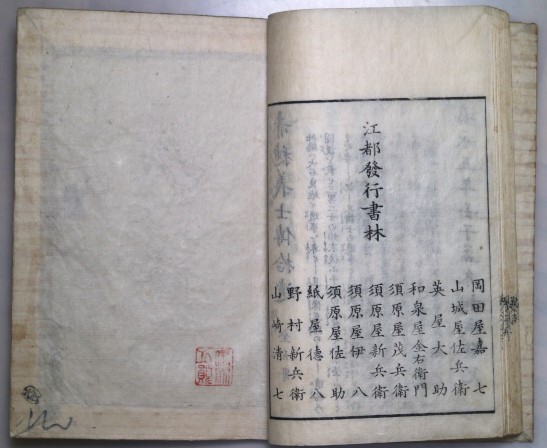 江都發行書林
岡田屋嘉七
山城屋佐兵衛
英屋大助
和泉屋金右衛門
須原屋茂兵衛
須原屋新兵衛
須原屋伊八
須原屋佐助
紙屋德八
野村新兵衛
山崎清七